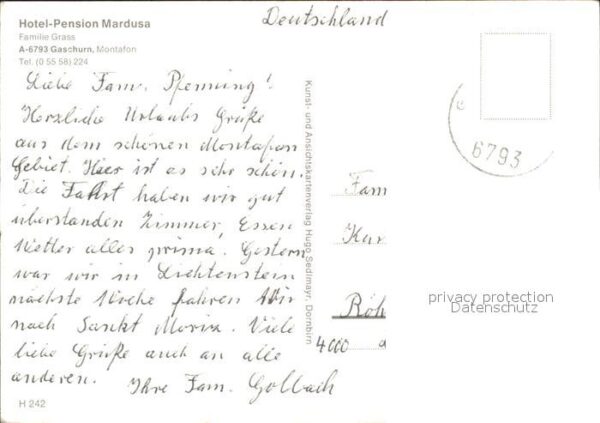 Hotel-Pension Mardusa
Familie Grass
A-6793 Gaschurn, Montafon
Tel. (0 55 58) 224
Deutschland
Liebe Fam. Pfenning!
Herzliche Urlaubs Grüße
aus dem schönen Montafon
Gebiet. Hier ist es sehr schön.
Die Fahrt haben wir gut
überstanden Zimmer, Essen
Wetter alles prima. Gestern
war wir in Lichtenstein
nächste Woche fahren Wir
nach Sankt Moriz. Viele
liebe Grüße auch an alle
anderen. Ihre Fam. Gollbach
H 242
Kunst- und Ansichtskartenverlag Hugo Sedlmayr, Dornbirn
6793
Fam
Kar
Röh
4000
privacy protection
Datenschutz